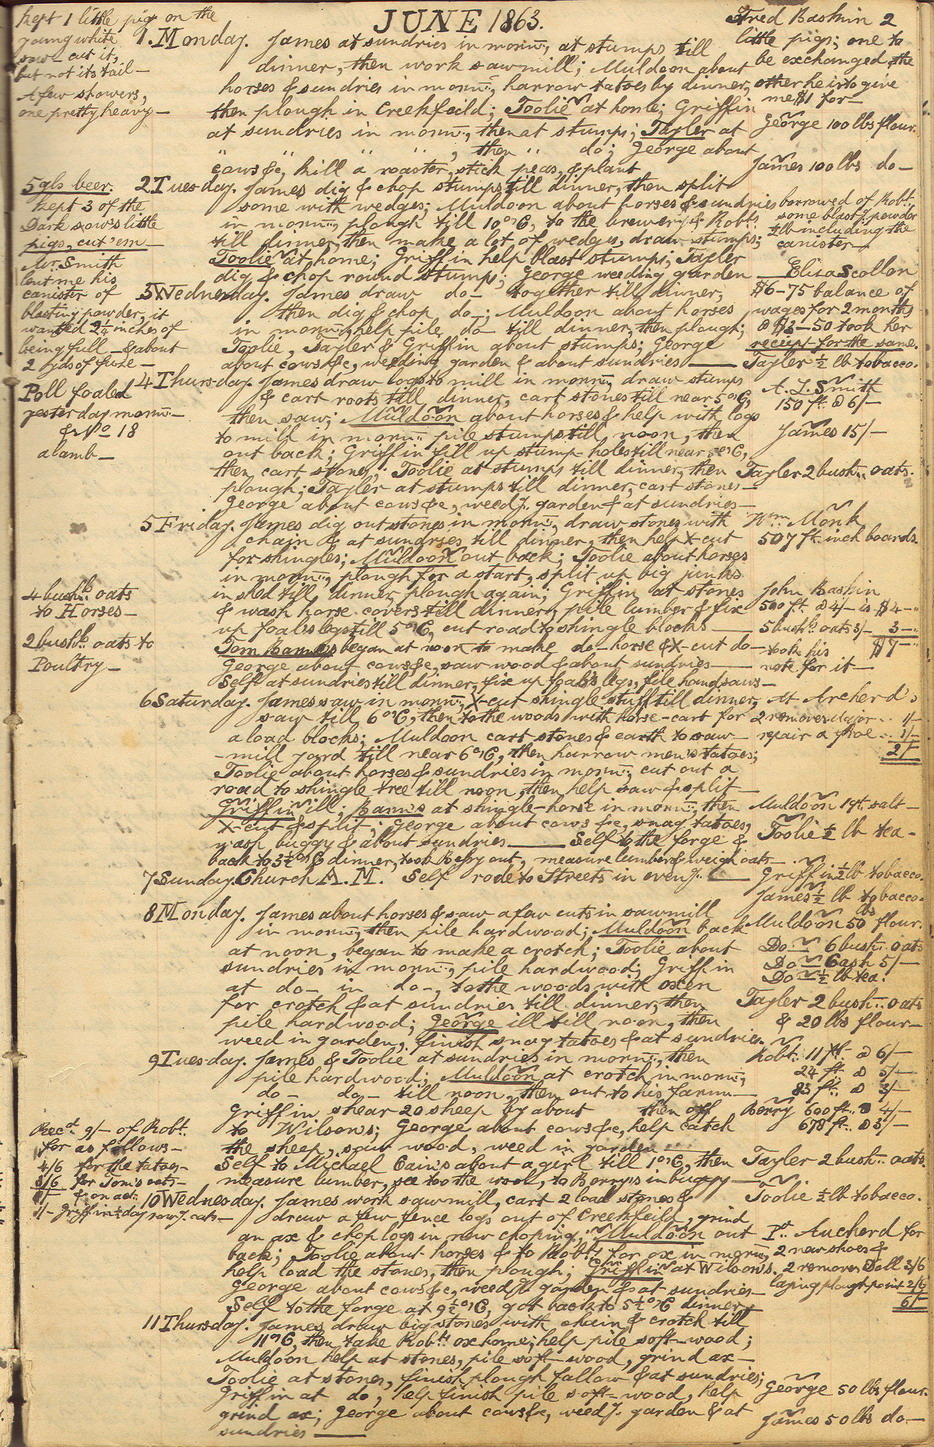 JUNE 1863.
kept 1 little pig on the
young white
sow cut it,
but not its tail—
A few showers,
one pretty heavy—
1. Monday. James at sundries in morn:, at stumps till
dinner, then work sawmill; Muldoon about
horses & sundries in morn:, harrow tatoes by dinner,
then plough in Creekfeild; Toolie at home; Griffin
at sundries in morn:, then at stumps; Tayler at
" " " " ; then " do; George about
cows &c, kill a roaster, stick peas, & plant
Fred Baskin 2
little pigs; one to
be exchanged, the
other he is to give
me $1 for—
George 100 lbs flour.
James 100 lbs do—
5 gls beer.
Kept 3 of the
Dark sow's little
pigs, cut 'em
Mr. Smith
lent me his
canister of
blasting powder, it
wanted 2¼ inches of
being full — & about
2 yds of fuze—
2 Tuesday. James dig & chop stumps till dinner, then split
some with wedges; Muldoon about horses & sundries
in morn:, plough till 10 o'C, to the brewery & Robt:
till dinner, then make a lot of wedges, draw stumps;
Toolie at home; Griffin help blast stumps; Tayler
dig & chop round stumps; George weeding garden
borrowed of Robt:
some blast: powder
lb including the
canister—
Eliza Scollan
$6-75 balance of
wages for 2 months
@ $3-50 took her
receipt for the same.
Tayler ½ lb tobacco.
3 Wednesday. James draw do— together till dinner,
then dig & chop do—; Muldoon about horses
in morn:, help pile do— till dinner, then plough;
Toolie, Tayler & Griffin about stumps; George
about cows &c, weeding garden & about sundries—
Poll foaled
yesterday morn:—
& No 18
a lamb—
4 Thursday. James draw logs to mill in morn:, draw stumps
& cart roots till dinner, cart stones till near 5 o'C,
then saw; Muldoon about horses & help with logs
to mill in morn:, pile stumps till noon, then
out back; Griffin fill up stump holes till near o'C,
then cart stones; Toolie at stumps till dinner, then
plough; Tayler at stumps till dinner, cart stones—
George about cows &c, weed: garden & at sundries—
A. J. Smith
150 ft. @ 6/—
James 15/—
Tayler 2 bush: oats.
5 Friday. James dig out stones in morn:, draw stones with
chain & at sundries till dinner, then help X-cut
for shingles; Muldoon out back; Toolie about horses
in morn:, plough for a start, split up big junks
in shed till dinner, plough again; Griffin at stones
& wash horse covers till dinner, pile lumber & fix
up foal's legs till 5 o'C, cut road to shingle blocks—
Tom Barnes began at noon to make do— horse & X-cut do—
George about cows &c, saw wood & about sundries—
Self at sundries till dinner, fix up foal's legs, file handsaws—
Wm Monk
507 ft. inch boards.
4 bush: oats
to Horses—
2 bush: oats to
Poultry—
John Baskin
500 ft. @ 4/— is $4—
5 bush: oats 3/— 3—
took his $7—
note for it—
6 Saturday. James saw in morn:, X-cut shingle stuff till dinner,
saw till 6 o'C, then to the woods with horse-cart for
a load blocks; Muldoon cart stones & earth to saw-
-mill yard till near 6 o'C, then harrow men's tatoes;
Toolie about horses & sundries in morn:, cut out a
road to shingle tree till noon, then help saw & split—
Griffin ill; Barnes at shingle-horse in morn:, then
X-cut & split; George about cows &c, snag tatoes,
wash buggy & about sundries— Self to the forge &
back to 3½ o'C dinner, took Bessy out, measure lumber & weigh oats—
At Archerd's
2 removes Major 1/—
repair a shoe 1/—
2/—
Muldoon 1 qt. salt—
Toolie ½ lb tea—
7 Sunday. Church A.M. Self rode to Streets in even:—
Griffin ½ lb tobacco.
James ½ lb tobacco.
8 Monday. James about horses & saw a few cuts in sawmill
in morn:, then pile hardwood; Muldoon back
at noon, began to make a crotch; Toolie about
sundries in morn:, pile hardwood; Griffin
at do— in do—, to the woods with oxen
for crotch & at sundries till dinner, then
pile hardwood; George ill till noon, then
weed in garden, finish snag tatoes & at sundries.
Muldoon 50 lbs flour.
Do— 6 bush: oats
Do— Cash 5/—
Do— ½ lb tea.
Tayler 2 bush: oats
& 20 lbs flour—
9 Tuesday. James & Toolie at sundries in morn:, then
pile hardwood; Muldoon at crotch in morn:,
do— do— till noon, then out to his farm—
Griffin shear 20 sheep by about then off
to Wilson's; George about cows &c, help catch
the sheep, saw wood, weed in garden—
Self to Michael Cain's about a girl till 1 o'C, then
measure lumber, see to the wool, to Berry's in buggy—
Robt: 11 ft. @ 6/—
24 ft. @ 5/—
83 ft. @ 3/—
Berry 600 ft. @ 4/—
678 ft. @ 5/—
Tayler 2 bush: oats.
Toolie ½ lb tobacco.
Recd. 9/— of Robt.
for as follows—
4/6 for the tatoes—
for Tom's oats—
1/— Griffin ½ day sow: oats—
10 Wednesday. James work sawmill, cart 2 load stones &
draw a few fence logs out of Creekfeild, grind
an ax & chop logs in new choping; Muldoon out
back; Toolie about horses & to Robt's for ox in morn:,
help load the stones, then plough; Griffin at Wilson's.
George about cows &c, weed: garden & at sundries—
Self to the forge at 9½ o'C, got back to 5½ o'C dinner,
Pd. Aucherd for
2 new shoes &
2 removes Doll 3/6
laying plough point 2/6
6/—
11 Thursday. James draw big stones with chain & crotch till
11 o'C, then take Robt's ox home, help pile soft-wood;
Muldoon help at stones, pile soft-wood, grind ax—
Toolie at stones, finish plough fallow & at sundries;
Griffin at do, help finish pile soft-wood, help
grind ax; George about cows &c, weed: garden & at
sundries—
George 50 lbs flour.
James 50 lbs do—